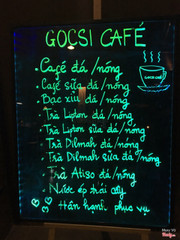 GOCSI CAFÉ
• Café đá /nóng
• Café sữa đá /nóng
• Bạc xỉu đá /nóng
• Trà Lipton đá /nóng
• Trà Lipton sữa đá /nóng
• Trà Dilmah đá /nóng
• Trà Dilmah sữa đá /nóng
• Trà Atiso đá /nóng
• Nước ép trái cây
Hân hạnh phục vụ